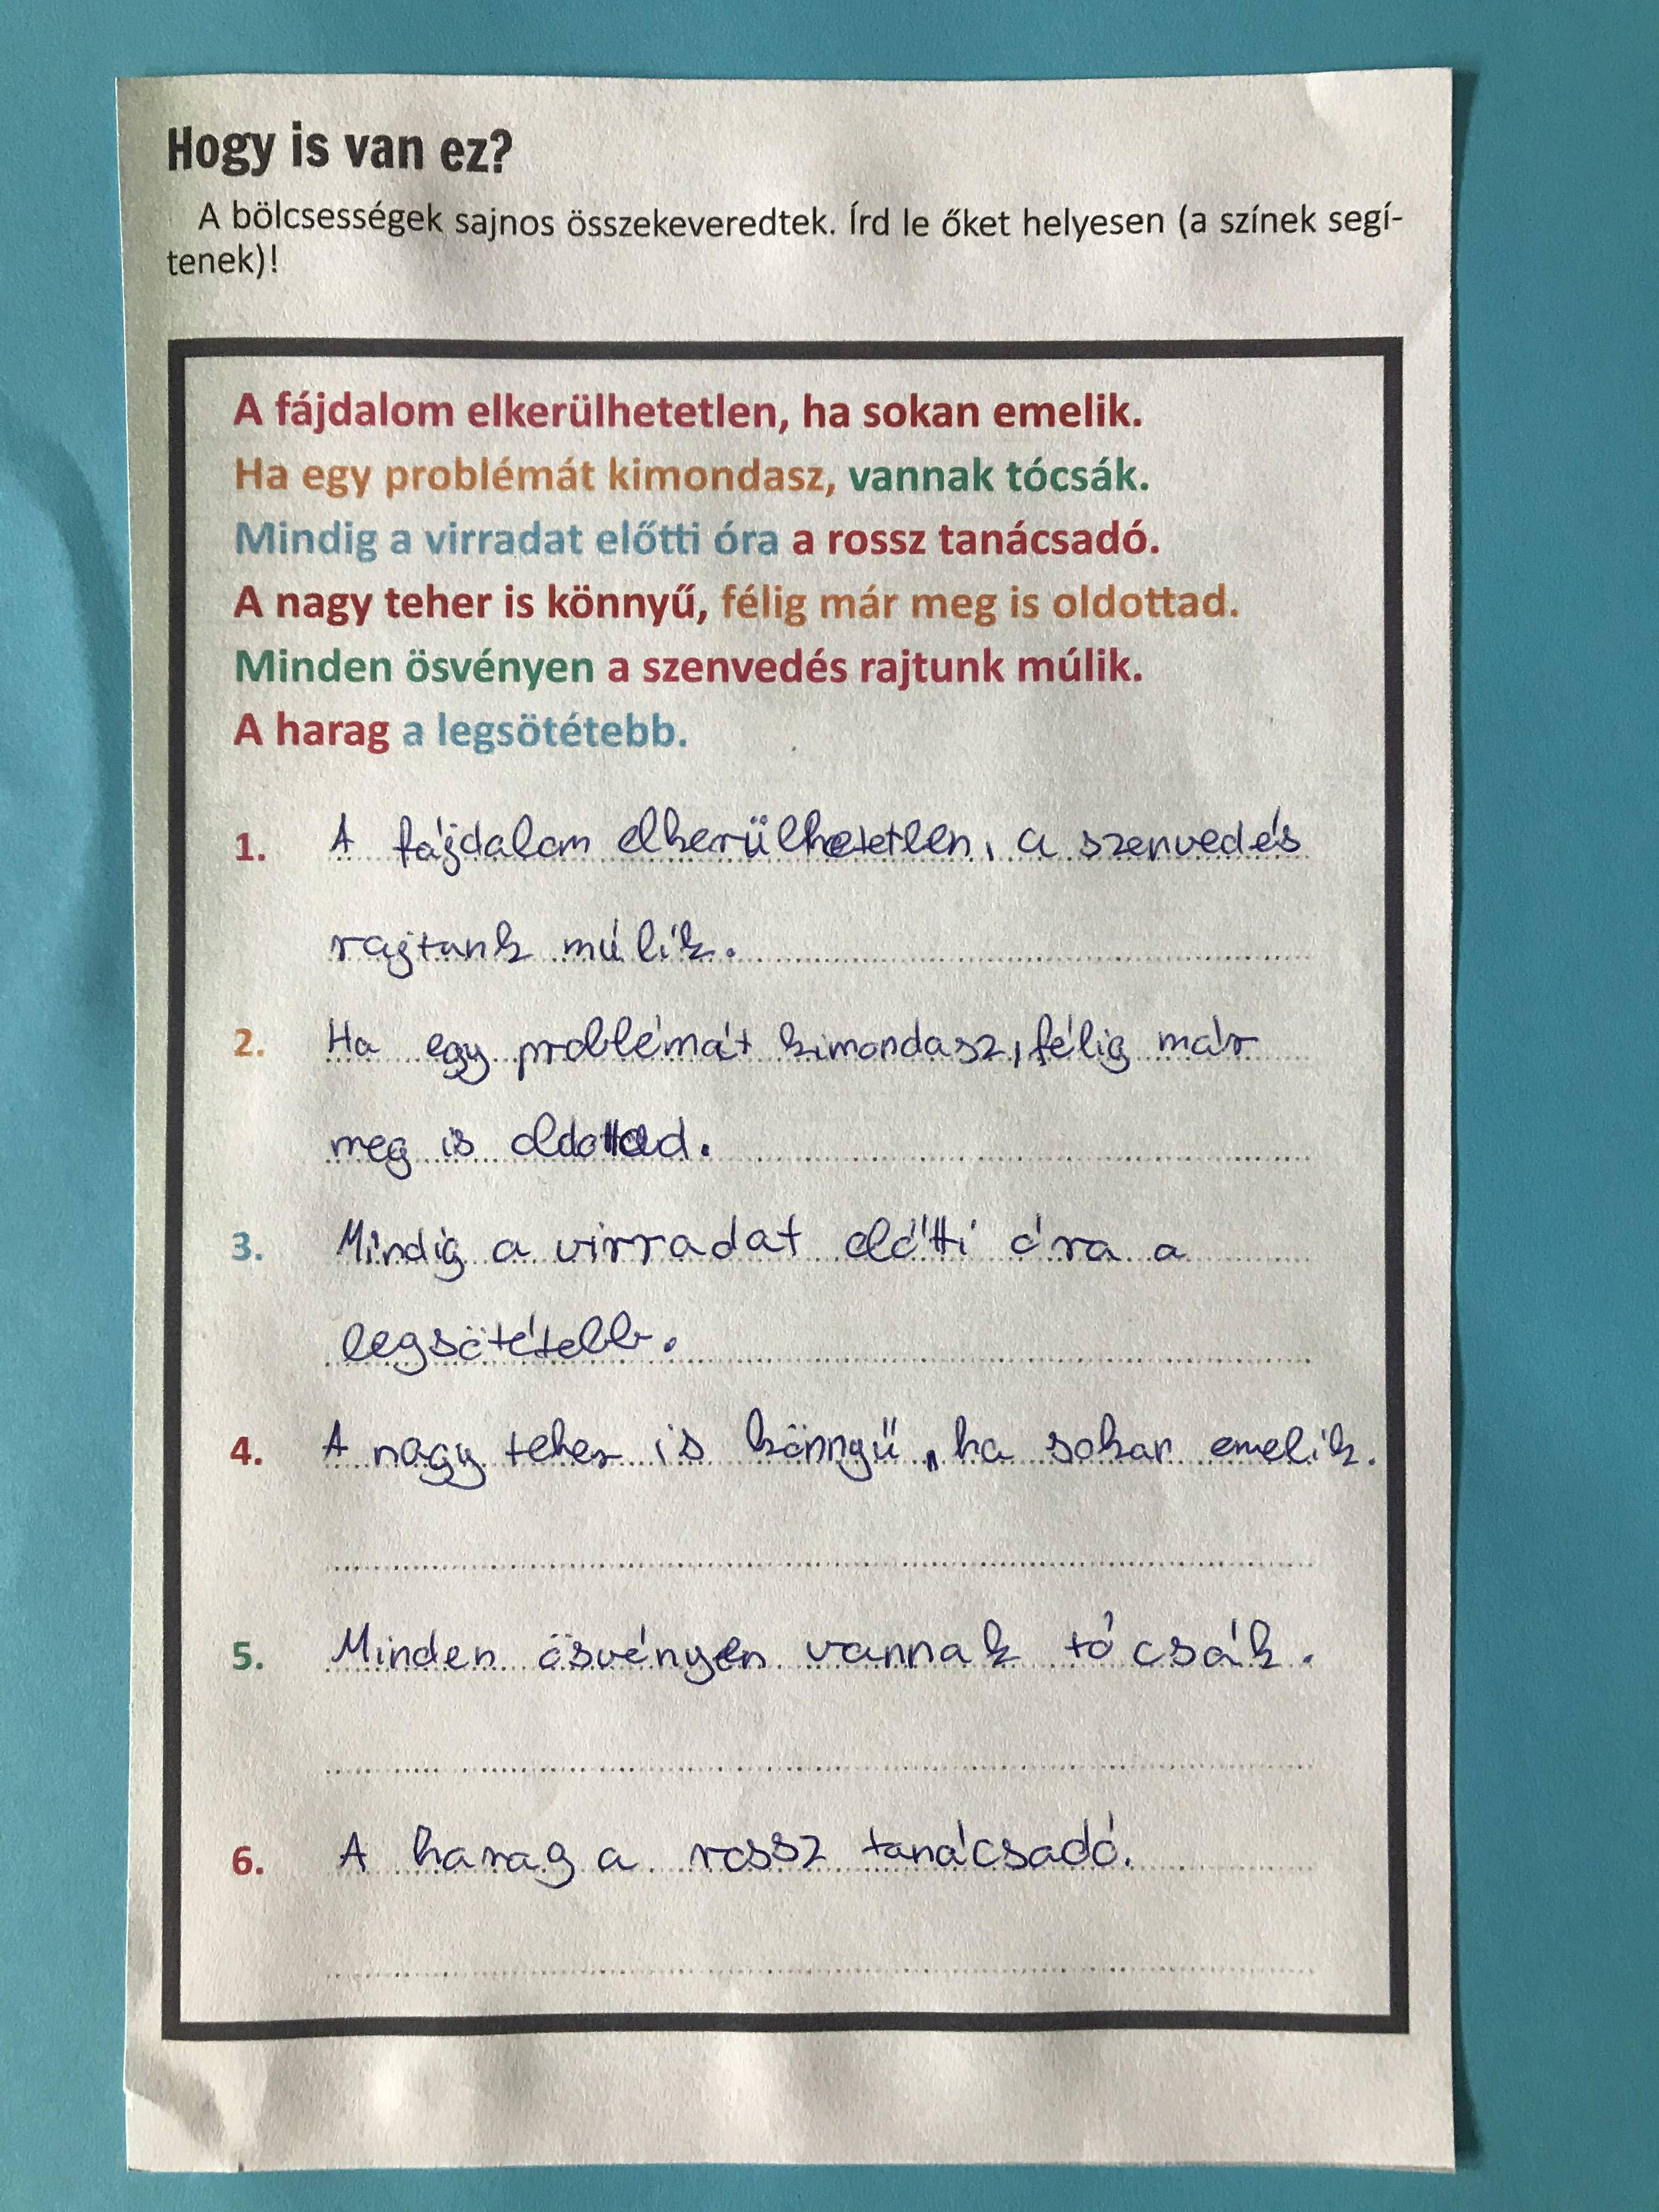 Hogy is van ez?
A bölcsességek sajnos összekeveredtek. Írd le őket helyesen (a színek segí-
tenek)!
A fájdalom elkerülhetetlen, ha sokan emelik.
Ha egy problémát kimondasz, vannak tócsák.
Mindig a virradat előtti óra a rossz tanácsadó.
A nagy teher is könnyű, félig már meg is oldottad.
Minden ösvényen a szenvedés rajtunk múlik.
A harag a legsötétebb.
1. A fájdalom elkerülhetetlen, a szenvedés
rajtunk múlik.
2. Ha egy problémát kimondasz, félig már
meg is oldottad.
3. Mindig a virradat előtti óra a
legsötétebb.
4. A nagy teher is könnyű, ha sokan emelik.
5. Minden ösvényen vannak tócsák.
6. A harag a rossz tanácsadó.